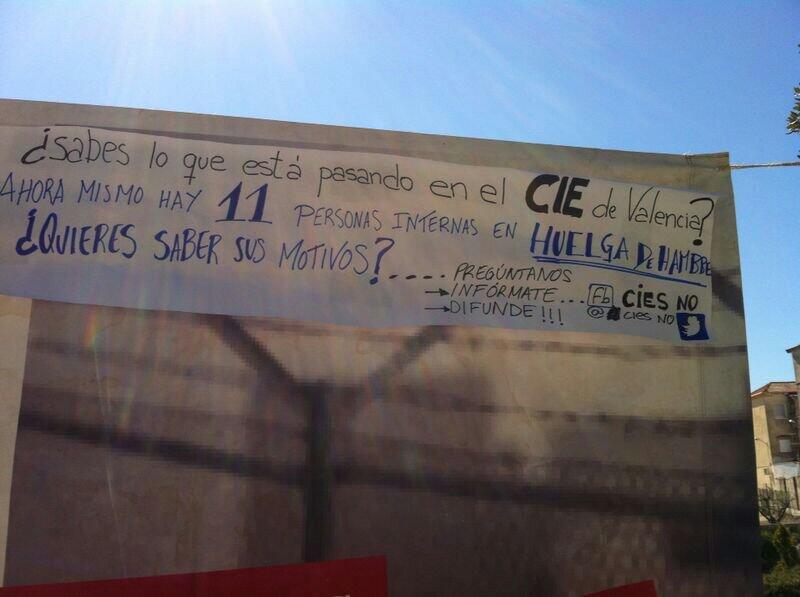 ¿Sabes lo que está pasando en el CIE de Valencia?
AHORA MISMO HAY 11 PERSONAS INTERNAS EN HUELGA DE HAMBRE
¿QUIERES SABER SUS MOTIVOS?.....
PREGÚNTANOS
→INFÓRMATE... Fb CIES NO
→DIFUNDE!!! @ CIES NO